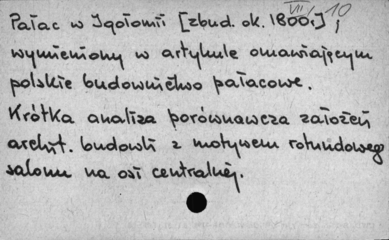 VII/10
Pałac w Igołomii [zbud. ok. 1800r.],
wymieniony w artykule omawiającym
polskie budownictwo pałacowe.
Krótka analiza porównawcza założeń
archit. budowli z motywem rotundowego
salonu na osi centralnej.